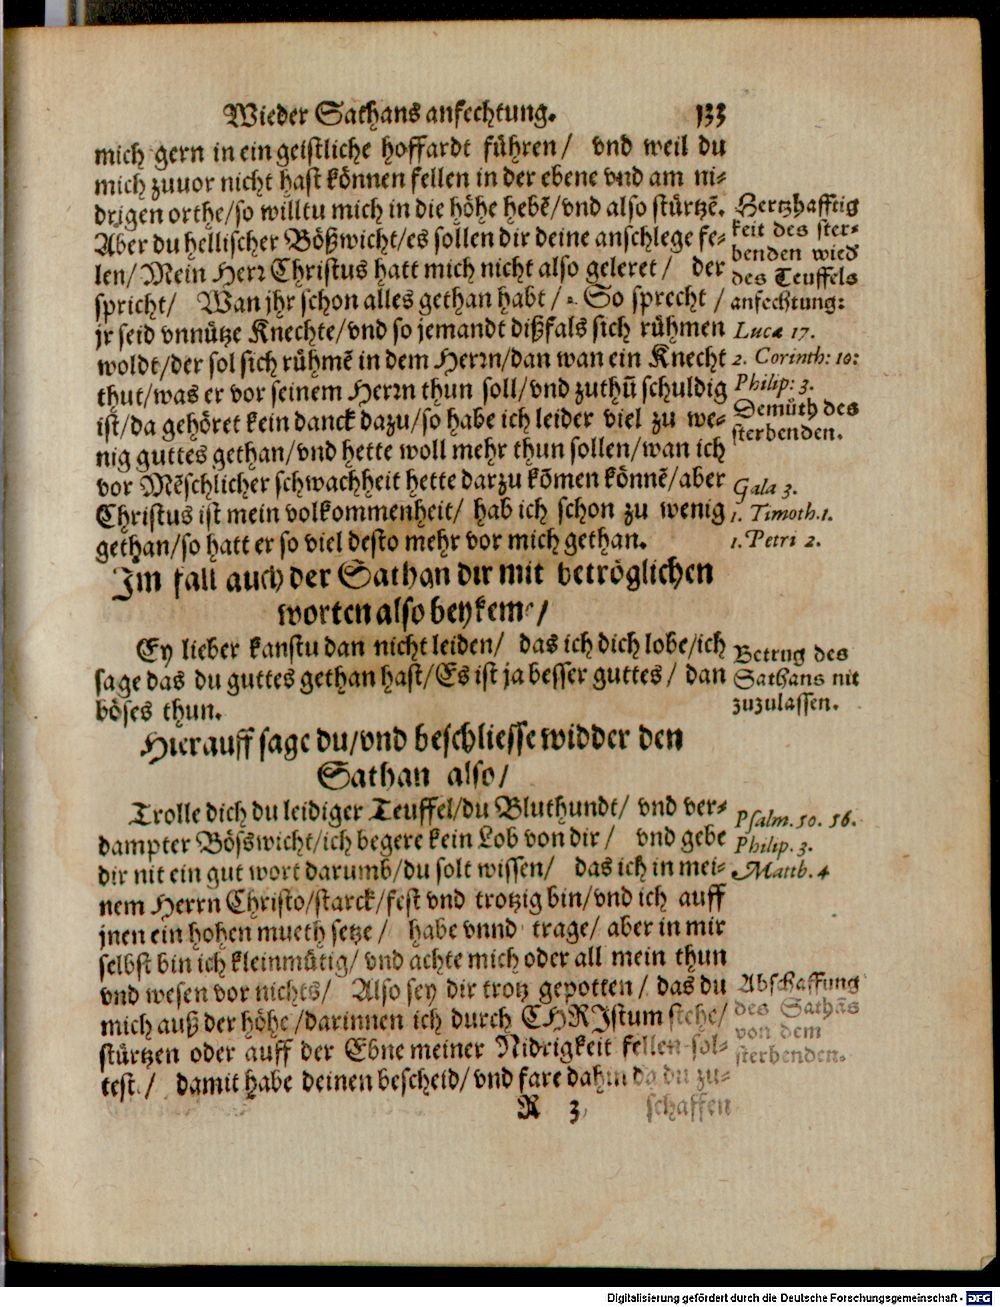 Wieder Sathans anfechtung. 133
mich gern in ein geistliche hoffardt führen/ vnd weil du
mich zuuor nicht hast können fellen in der ebene vnd am ni-
drigen orthe/so willtu mich in die höhe hebē/vnd also stürtzē.
Aber du hellischer Bößwicht/es sollen dir deine anschlege fe-
len/Mein Herr Christus hatt mich nicht also geleret/ der
spricht/ Wan jhr schon alles gethan habt/ So sprecht/
jr seid vnnütze Knechte/vnd so jemandt dißfals sich rühmen
woldt/der sol sich rühmē in dem Herrn/dan wan ein Knecht
thut/was er vor seinem Herrn thun soll/vnd zuthū schuldig
ist/da gehöret kein danck dazu/so habe ich leider viel zu we-
nig guttes gethan/vnd hette woll mehr thun sollen/wan ich
vor Mēschlicher schwachheit hette darzu kōmen könnē/aber
Christus ist mein volkommenheit/ hab ich schon zu wenig
gethan/so hatt er so viel desto mehr vor mich gethan.
Hertzhafftig
keit des ster-
benden wied
des Teuffels
anfechtung:
Lucæ 17.
2. Corinth: 10:
Philip: 3.
Demuth des
sterbenden.
Gala 3.
1. Timoth.1.
1. Petri 2.
Im fall auch der Sathan dir mit betröglichen
worten also beykeme/
Ey lieber kanstu dan nicht leiden/ das ich dich lobe/ich
sage das du guttes gethan hast/Es ist ja besser guttes/ dan
böses thun.
Betrug des
Sathans nit
zuzulassen.
Hierauff sage du/vnd beschliesse widder den
Sathan also/
Trolle dich du leidiger Teuffel/du Bluthundt/ vnd ver-
dampter Böswicht/ich begere kein Lob von dir/ vnd gebe
dir nit ein gut wort darumb/du solt wissen/ das ich in mei-
nem Herrn Christo/starck/fest vnd trotzig bin/vnd ich auff
jnen ein hohen mueth setze/ habe vnnd trage/ aber in mir
selbst bin ich kleinmütig/ vnd achte mich oder all mein thun
vnd wesen vor nichts/ Also sey dir trotz gepotten/ das du
mich auß der höhe/darinnen ich durch CHRIstum stehe/
stürtzen oder auff der Ebne meiner Nidrigkeit fellen sol-
test/ damit habe deinen bescheid/ vnd fare dahin da du zu-
Psalm. 50. 56.
Philip. 3.
Matth. 4
Abschaffung
des Sathās
von dem
sterbenden.
R 3 schaffen
Digitalisierung gefördert durch die Deutsche Forschungsgemeinschaft - DFG